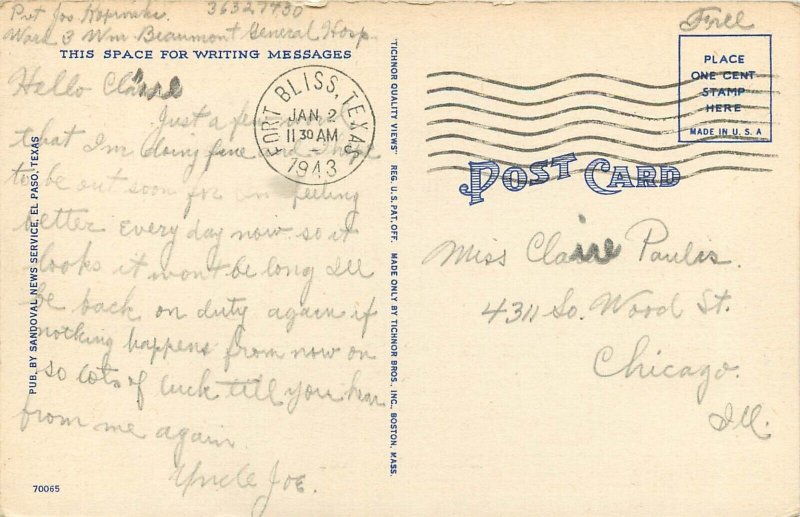 Pvt Jos. 36327730
Ward 3 Wm Beaumont General Hosp.
THIS SPACE FOR WRITING MESSAGES
Hello Claire
Just a few
that I'm doing fine and I hope
to be out soon for im feeling
better every day now so it
looks it wont be long Ill
be back on duty again if
nothing happens from now on
so lots of luck till you hear
from me again.
Uncle Joe.
70065
PUB. BY SANDOVAL NEWS SERVICE, EL PASO, TEXAS
FORT BLISS, TEXAS
JAN 2
11 30 AM
1943
"TICHNOR QUALITY VIEWS" REG. U.S. PAT. OFF. MADE ONLY BY TICHNOR BROS., INC., BOSTON, MASS.
Free
PLACE
ONE CENT
STAMP
HERE
MADE IN U.S.A
POST CARD
Miss Claire Paulis
4311 So. Wood St.
Chicago.
Ill.